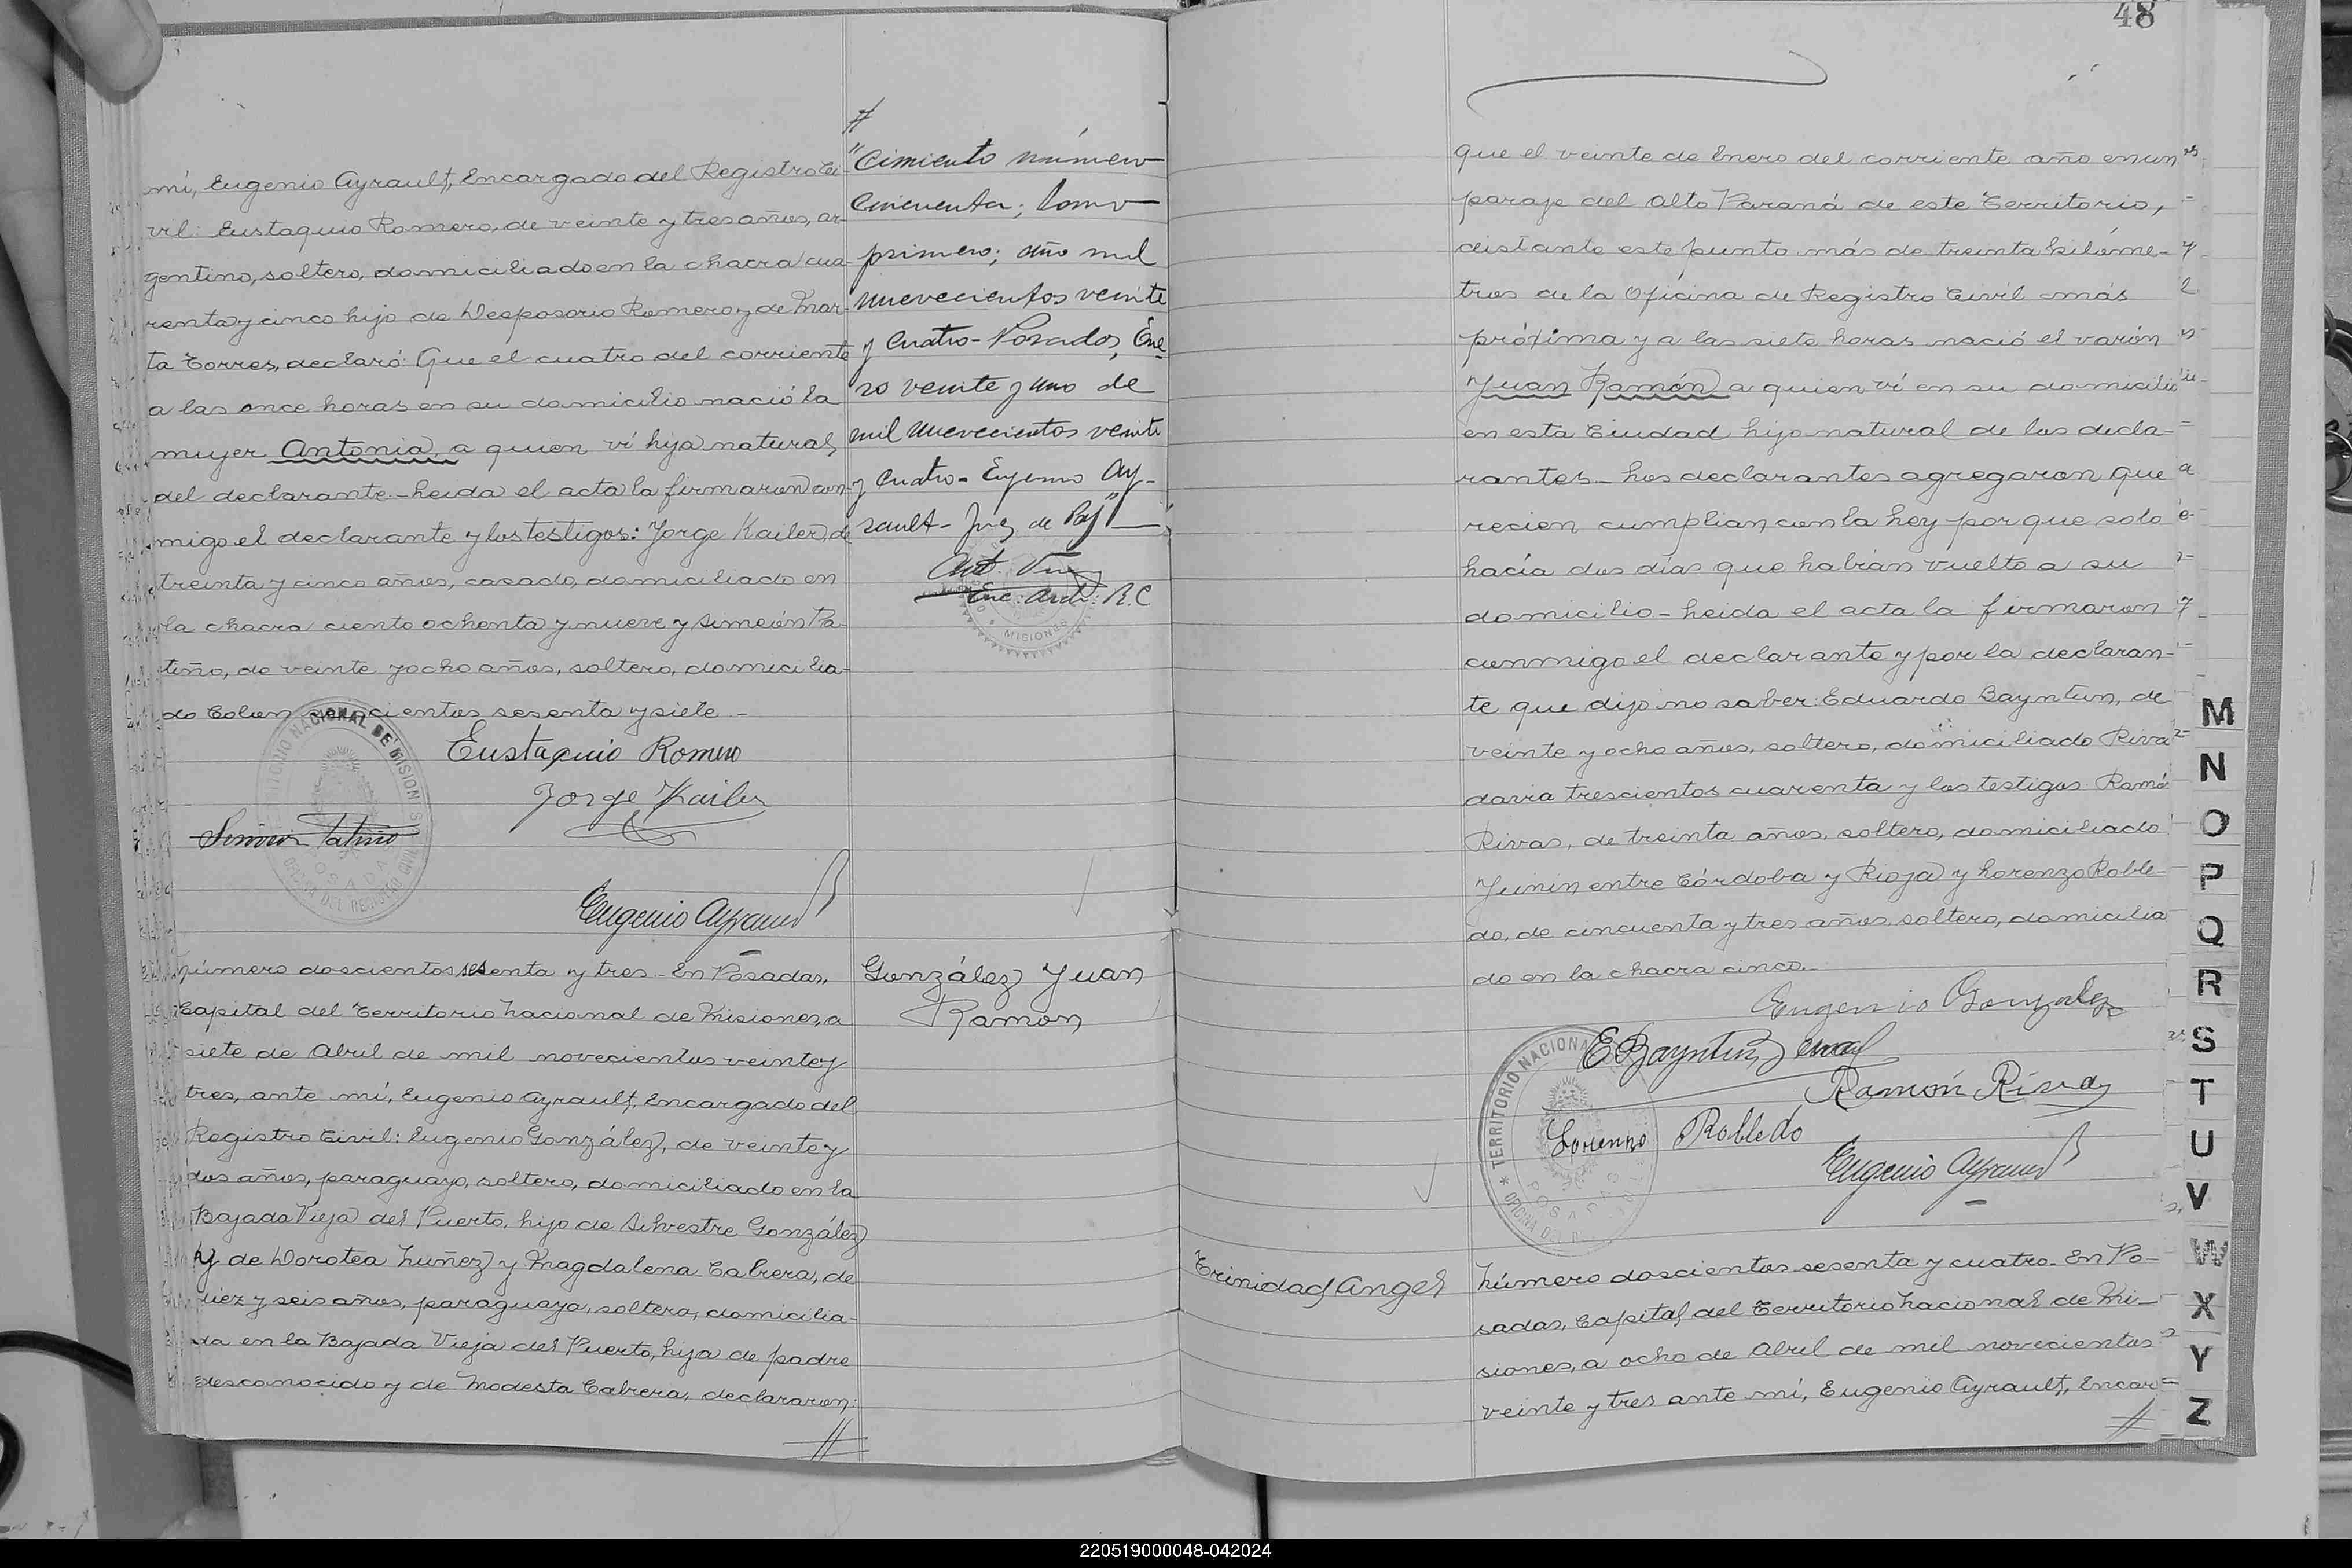 mi, Eugenio Ayrault, Encargado del Registro Ci-
vil: Eustaquio Romero, de veinte y tres años, ar-
gentino, soltero, domiciliado en la chacra cua-
renta y cinco hijo de Desposorio Romero y de Mar-
ta Torres, declaró: Que el cuatro del corriente
a las once horas en su domicilio nació la
mujer Antonia, a quien ví hija natural
del declarante - Leida el acta la firmaron con-
migo el declarante y los testigos: Jorge Kailer, de
treinta y cinco años, casado, domiciliado en
la chacra ciento ochenta y nueve y Simeón Pa-
tiño, de veinte y ocho años, soltero, domicilia-
do Colon cientos sesenta y siete -
Eustaquio Romero
Jorge Kailer
Simeon Patiño
Eugenio Ayrault
TERRITORIO NACIONAL DE MISIONES
OFICINA DEL REGISTRO CIVIL
POSADAS
"cimiento número
cincuenta; tomo
primero; año mil
nuevecientos veinte
y cuatro - Posadas, Ene-
ro veinte y uno de
mil nuevecientos veinte
y cuatro - Eugenio Ay-
rault - Juez de Paz"
Enc. Arch. R.C
MISIONES
Número doscientos sesenta y tres - En Posadas,
Capital del Territorio Nacional de Misiones, a
siete de Abril de mil novecientos veinte y
tres, ante mí, Eugenio Ayrault, Encargado del
Registro Civil: Eugenio González, de veinte y
dos años, paraguayo, soltero, domiciliado en la
Bajada Vieja del Puerto, hijo de Silvestre González
y de Dorotea Nuñez y Magdalena Cabrera, de
diez y seis años, paraguaya, soltera, domicilia-
da en la Bajada Vieja del Puerto, hija de padre
desconocido y de Modesta Cabrera, declararon:
González Juan
Ramon
48
que el veinte de Enero del corriente año en un
paraje del Alto Paraná de este Territorio,
distante este punto más de treinta kilóme-
tros de la Oficina de Registro Civil más
próxima y a las siete horas nació el varón
Juan Ramón a quien ví en su domicilio
en esta Ciudad hijo natural de los decla-
rantes - Los declarantes agregaron que
recien cumplian con la Ley por que solo
hacía dos días que habían vuelto a su
domicilio - Leida el acta la firmaron
conmigo el declarante y por la declaran-
te que dijo no saber: Eduardo Bayntun, de
veinte y ocho años, soltero, domiciliado Riva-
davia trescientos cuarenta y los testigos Ramón
Rivas, de treinta años, soltero, domiciliado
Junin entre Córdoba y Rioja y Lorenzo Roble-
do, de cincuenta y tres años, soltero, domicilia
do en la chacra cinco.-
Eugenio Gonzalez
E Bayntun
Ramón Rivas
Lorenzo Robledo
Eugenio Ayrault
TERRITORIO NACIONAL
OFICINA DEL
POSADAS
Trinidad Angel
Número doscientos sesenta y cuatro - En Po-
sadas, Capital del Territorio Nacional de Mi-
siones, a ocho de Abril de mil novecientos
veinte y tres ante mí, Eugenio Ayrault, Encar-
M
N
O
P
Q
R
S
T
U
V
W
X
Y
Z
220519000048-042024